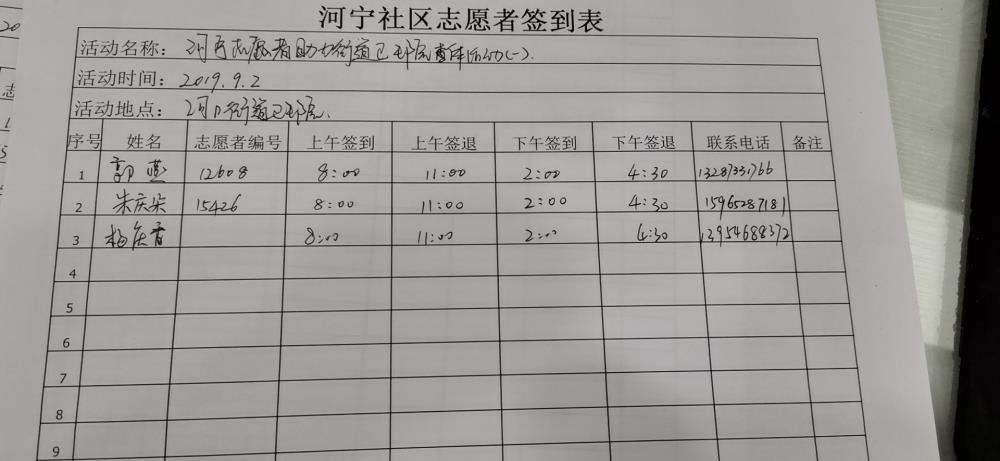 河宁社区志愿者签到表
活动名称：河宁志愿者助力街道卫生院查体活动(一).
活动时间：2019.9.2
活动地点：河口街道卫生院.
序号 姓名 志愿者编号 上午签到 上午签退 下午签到 下午签退 联系电话 备注
1 郭燕 12608 8:00 11:00 2:00 4:30 13287331766
2 朱庆荣 15426 8:00 11:00 2:00 4:30 15965287181
3 杨庆香 8:00 11:00 2:00 4:30 13954688372
4
5
6
7
8
9
20
志
1
5